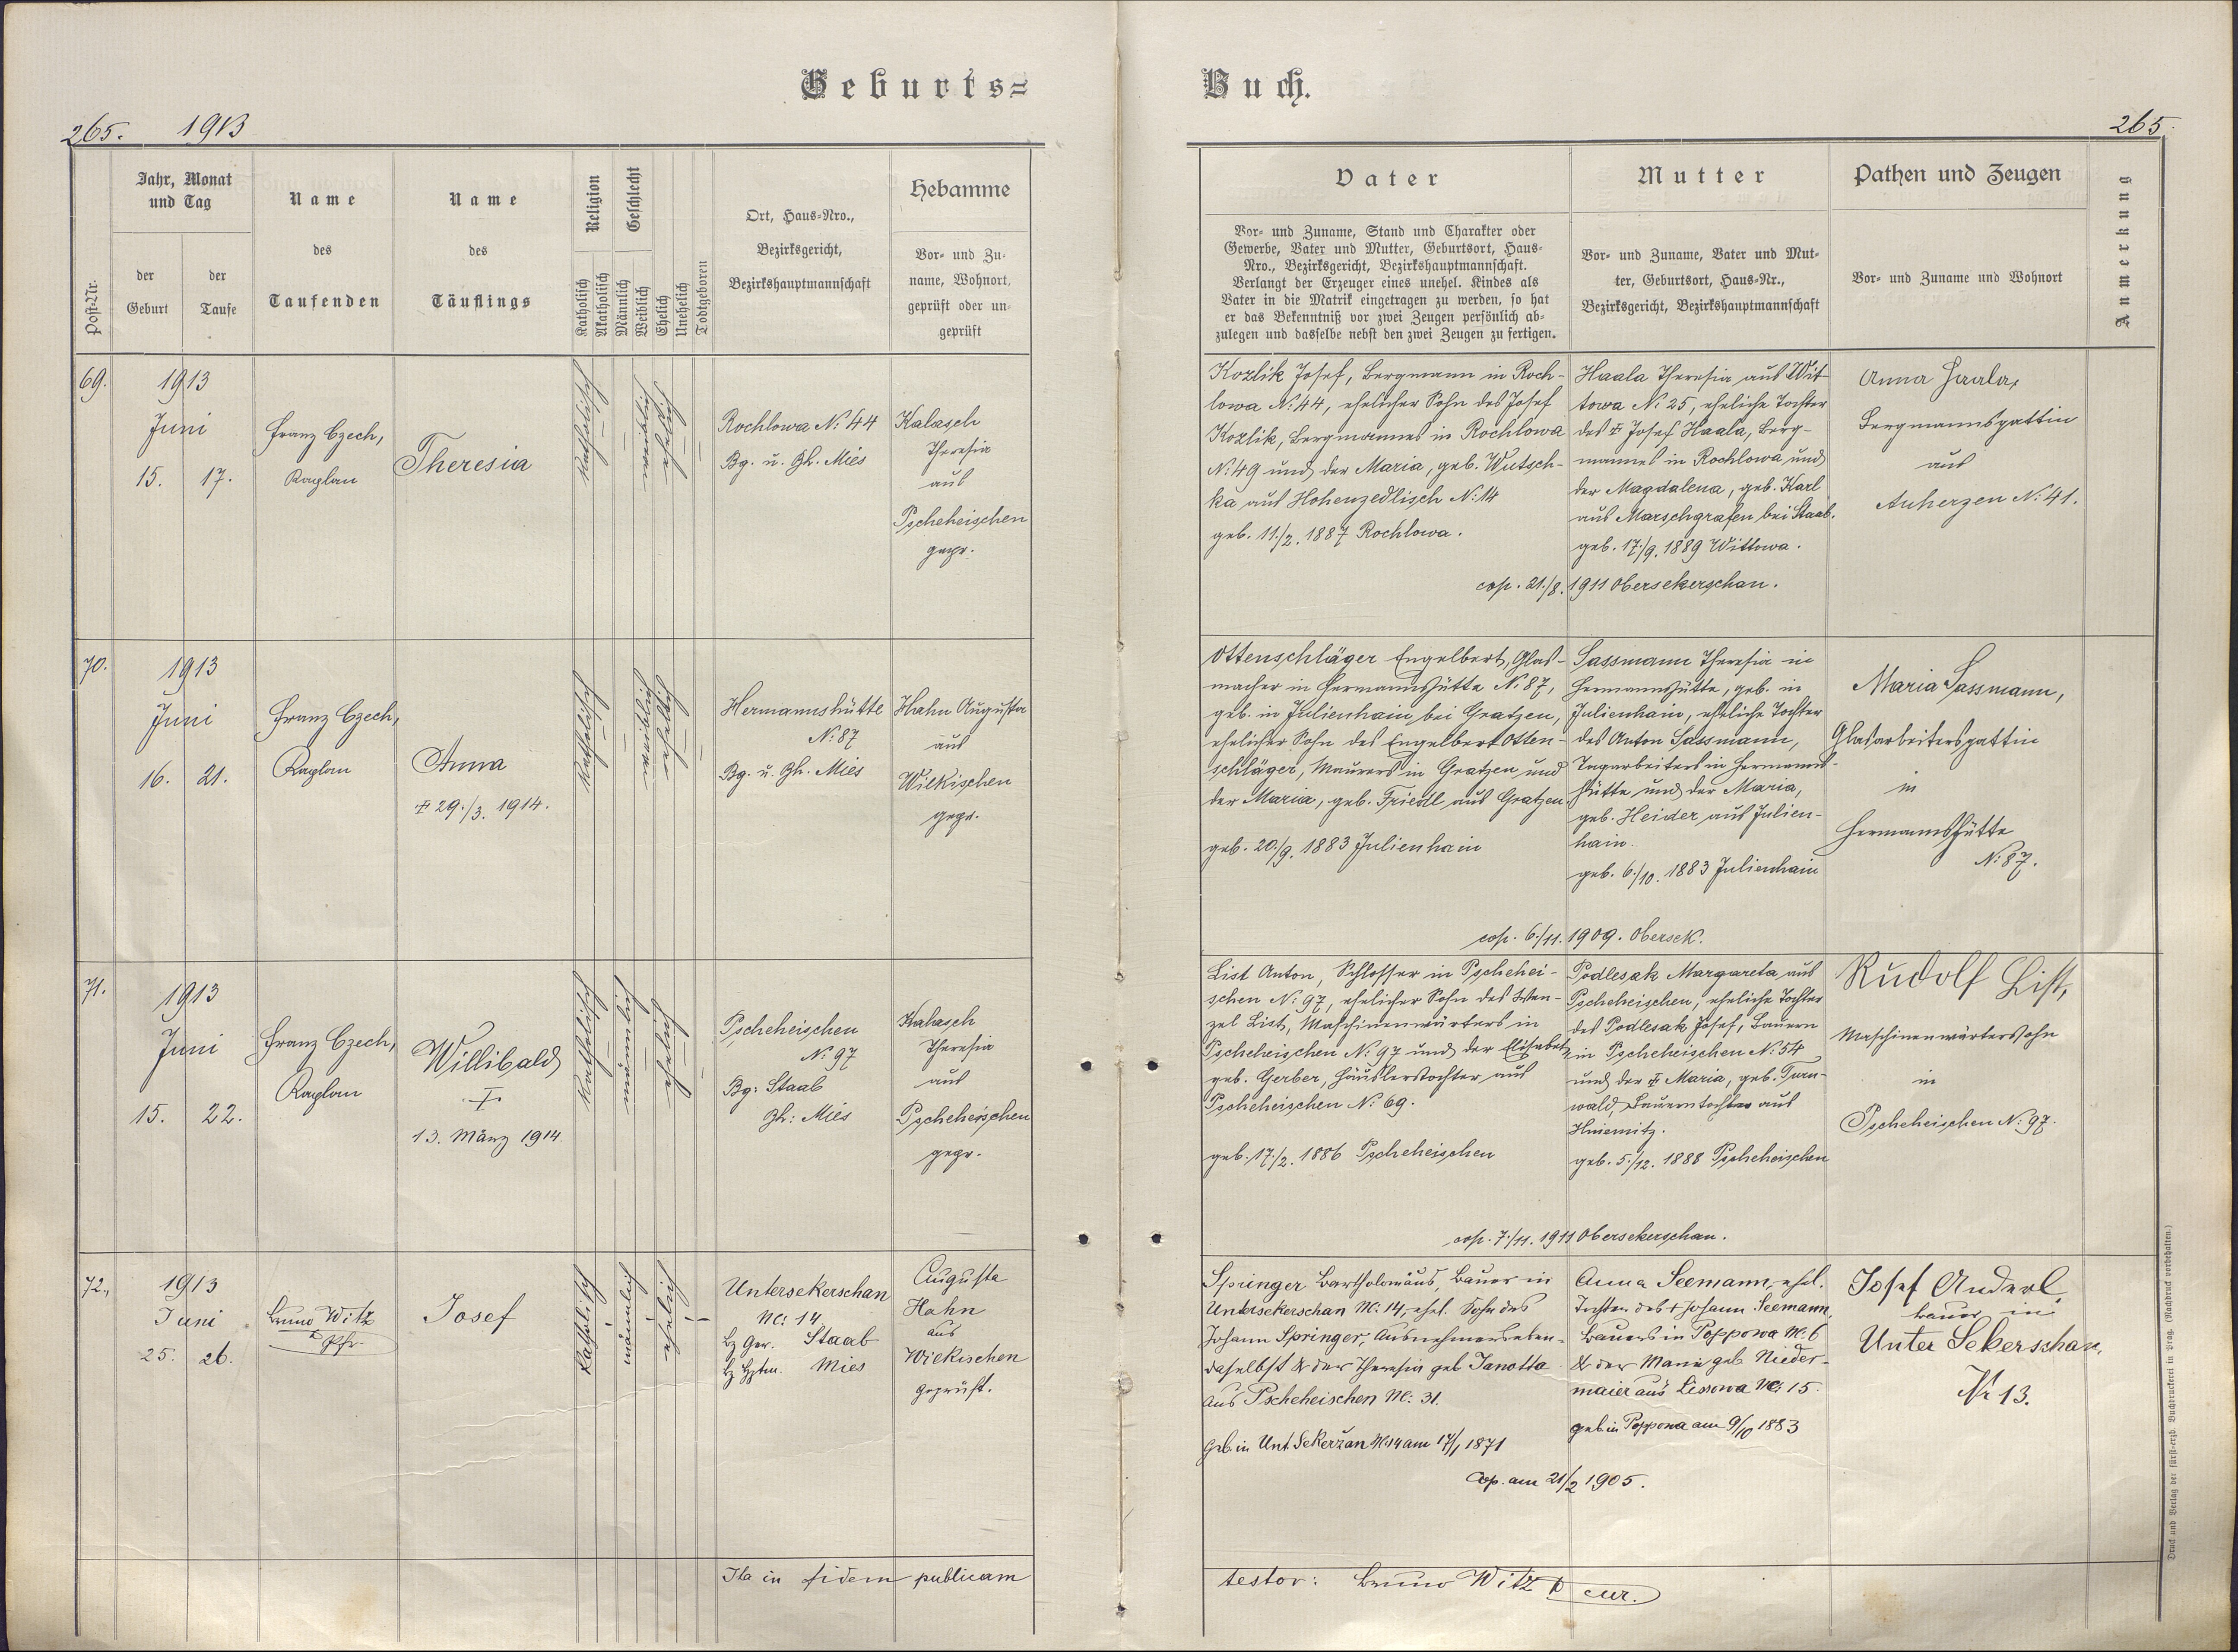 Geburts=
Buch.
265. 1913
265.
Post-Nr.
Jahr, Monat
und Tag
der
Geburt
der
Taufe
Name
des
Taufenden
Name
des
Täuflings
Religion
Katholisch
Akatholisch
Geschlecht
Männlich
Weiblich
Ehelich
Unehelich
Todtgeboren
Ort, Haus-Nro.,
Bezirksgericht,
Bezirkshauptmannschaft
Hebamme
Vor- und Zu-
name, Wohnort,
geprüft oder un-
geprüft
Vater
Vor- und Zuname, Stand und Charakter oder
Gewerbe, Vater und Mutter, Geburtsort, Haus-
Nro., Bezirksgericht, Bezirkshauptmannschaft.
Verlangt der Erzeuger eines unehel. Kindes als
Vater in die Matrik eingetragen zu werden, so hat
er das Bekenntniß vor zwei Zeugen persönlich ab-
zulegen und dasselbe nebst den zwei Zeugen zu fertigen.
Mutter
Vor- und Zuname, Vater und Mut-
ter, Geburtsort, Haus-Nr.,
Bezirksgericht, Bezirkshauptmannschaft
Pathen und Zeugen
Vor- und Zuname und Wohnort
Anmerkung
69.
1913
Juni
15. 17.
Franz Czech,
Kaplan
Theresia
katholisch
weiblich
ehelich
Rochlowa N: 44
Bg. u. Bh. Mies
Kalasch
Theresia
aus
Pscheheischen
gepr.
Kozlik Josef, Bergmann in Roch-
lowa N: 44, ehelicher Sohn des Josef
Kozlik, Bergmannes in Rochlowa
N: 49 und der Maria, geb. Wutsch-
ka aus Hohenzedlisch N: 14
geb. 11./2. 1887 Rochlowa.
Haala Theresia aus Wit-
towa N: 25, eheliche Tochter
des † Josef Haala, Berg-
mannes in Rochlowa und
der Magdalena, geb. Karl
aus Marschgrafen bei Staab.
geb. 17./9. 1889 Wittowa.
cop. 21./8. 1911 Obersekerschan.
Anna Haala,
Bergmannsgattin
aus
Auherzen N: 41.
70.
1913
Juni
16. 21.
Franz Czech,
Kaplan
Anna
† 29./3. 1914.
katholisch
weiblich
ehelich
Hermannshütte
N: 87
Bg. u. Bh. Mies
Hahn Augusta
aus
Wilkischen
gepr.
Ottenschläger Engelbert, Glas-
macher in Hermannshütte N: 87,
geb. in Julienhain bei Gratzen,
ehelicher Sohn des Engelbert Otten-
schläger, Maurers in Gratzen und
der Maria, geb. Friedl aus Gratzen.
geb. 20./9. 1883 Julienhain
Sassmann Theresia in
Hermannshütte, geb. in
Julienhain, eheliche Tochter
des Anton Sassmann,
Tagarbeiters in Hermanns-
hütte und der Maria,
geb. Heider aus Julien-
hain.
geb. 6./10. 1883 Julienhain
cop. 6./11. 1909. Obersek.
Maria Sassmann,
Glasarbeitersgattin
in
Hermannshütte
N: 87.
71.
1913
Juni
15. 22.
Franz Czech,
Kaplan
Willibald
†
13. März 1914.
katholisch
männlich
ehelich
Pscheheischen
N: 97
Bg: Staab
Bh: Mies
Kalasch
Theresia
aus
Pscheheischen
gepr.
List Anton, Schlosser in Pschehei-
schen N: 97, ehelicher Sohn des Wen-
zel List, Maschinenwärters in
Pscheheischen N: 97 und der Elisabet
geb. Gerber, Häuslerstochter aus
Pscheheischen N: 69.
geb. 17./2. 1886 Pscheheischen
Podlesak Margareta aus
Pscheheischen, eheliche Tochter
des Podlesak Josef, Bauern
in Pscheheischen N: 54
und der † Maria, geb. Turn-
wald, Bauerntochter aus
Hniemitz.
geb. 5./12. 1888 Pscheheischen
cop. 7./11. 1911 Obersekerschan.
Rudolf List,
Maschinenwärterssohn
in
Pscheheischen N: 97.
72.
1913
Juni
25. 26.
Bruno Witz
Pfr.
Josef
katholisch
männlich
ehelich
Untersekerschan
Nr: 14
Bz Ger. Staab
Bz Hptm. Mies
Augusta
Hahn
aus
Wilkischen
geprüft.
Springer Bartholomäus, Bauer in
Untersekerschan Nr. 14, ehel. Sohn des
Johann Springer, Ausnehmers eben-
daselbst & der Theresia geb Janotta
aus Pscheheischen Nr: 31.
Geb. in Unt. Sekeržan Nr 14 am 17/1 1871
Anna Seemann, ehel.
Tochter des † Johann Seemann,
Bauers in Poppowa Nr. 6
& der Marie geb. Nieder-
maier aus Lissowa Nr. 15.
geb in Poppowa am 9/10 1883
Cop. am 21/2 1905.
Josef Anderl
Bauer in
Unter Sekerschan,
Nr 13.
Ita in fidem publicam
testor: Bruno Witz cur.
Druck und Verlag der fürst-erzb. Buchdruckerei in Prag. (Nachdruck vorbehalten.)